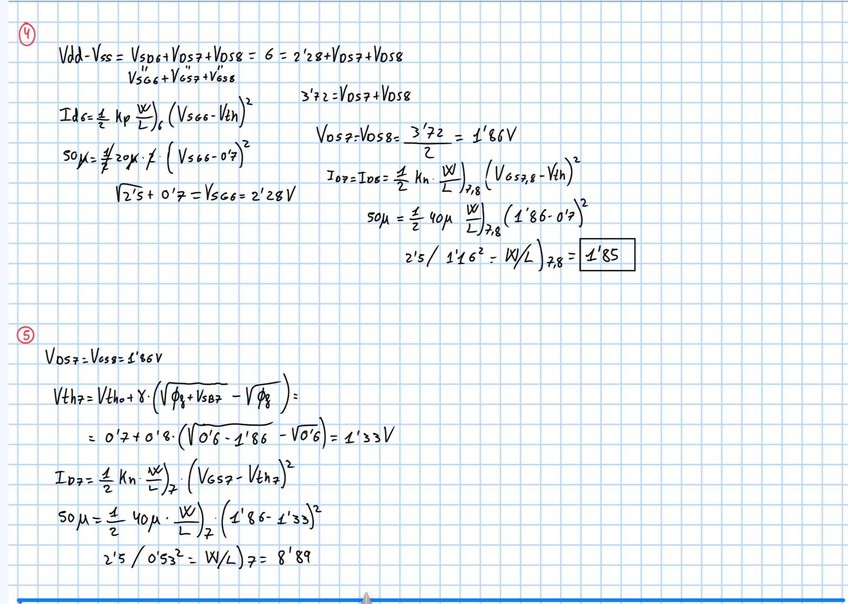 4
Vdd-Vss = VSD6+VDS7+VDS8 = 6 = 2'28+VDS7+VDS8
VSG6+VGS7+VGS8
3'72=VDS7+VDS8
Id6=1/2 Kp W/L)6 (VSG6-Vth)^2
50μ=1/2 20μ·2·(VSG6-0'7)^2
√2'5 + 0'7 = VSG6 = 2'28V
VDS7=VDS8= 3'72/2 = 1'86V
ID7=ID8= 1/2 Kn·W/L)7,8 (VGS7,8-Vth)^2
50μ = 1/2 40μ W/L)7,8 (1'86-0'7)^2
2'5/ 1'16^2 = W/L)7,8 = 1'85
5
VDS7=VGS8=1'86V
Vth7=Vtho+γ·(√φf+VSB7 - √φf)=
= 0'7+0'8·(√0'6-1'86 - √0'6)=1'33V
ID7= 1/2 Kn·W/L)7·(VGS7-Vth7)^2
50μ= 1/2 40μ·W/L)7·(1'86-1'33)^2
2'5 / 0'53^2 = W/L)7= 8'89